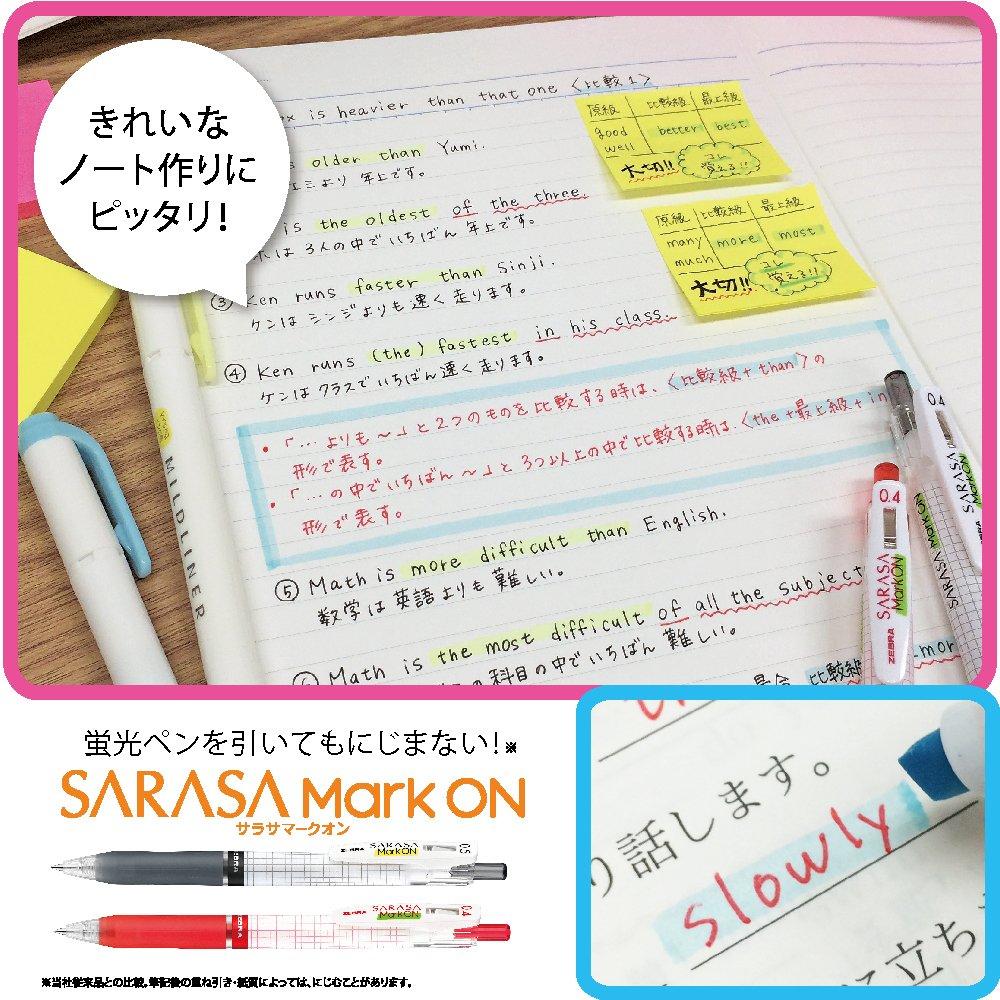 きれいな
ノート作りに
ピッタリ!
x is heavier than that one 〈比較1〉
older than Yumi.
より 年上です。
is the oldest of the three.
は 3人の中でいちばん 年上です。
③ Ken runs faster than Sinji.
ケンは シンジよりも 速く 走ります。
④ Ken runs (the) fastest in his class.
ケンは クラスで いちばん 速く 走ります。
・「… よりも ～」と 2つのものを 比較する時は、〈比較級+than〉の
形で表す。
・「… の中で いちばん ～」と 3つ以上の中で 比較する時は、〈the+最上級+in
形で表す。
⑤ Math is more difficult than English.
数学は 英語よりも 難しい。
Math is the most difficult of all the subject
の科目の中でいちばん 難しい。
比較級
more
原級 比較級 最上級
good better best
well
大切!! コレ
覚える!!
原級 比較級 最上級
many more most
much
大切!! コレ
覚える!!
MILDLINER
0.4
SARASA
MarkON
ZEBRA
SARASA MarkON
0.4
SARASA
MarkON
蛍光ペンを引いてもにじまない!※
SARASA Mark ON
サラサマークオン
ZEBRA
ZEBRA SARASA
MarkON 0.5
ZEBRA
ZEBRA SARASA
MarkON 0.4
※当社従来品との比較。筆記後の重ね引き・紙質によっては、にじむことがあります。
り話します。
slowly
に立ち